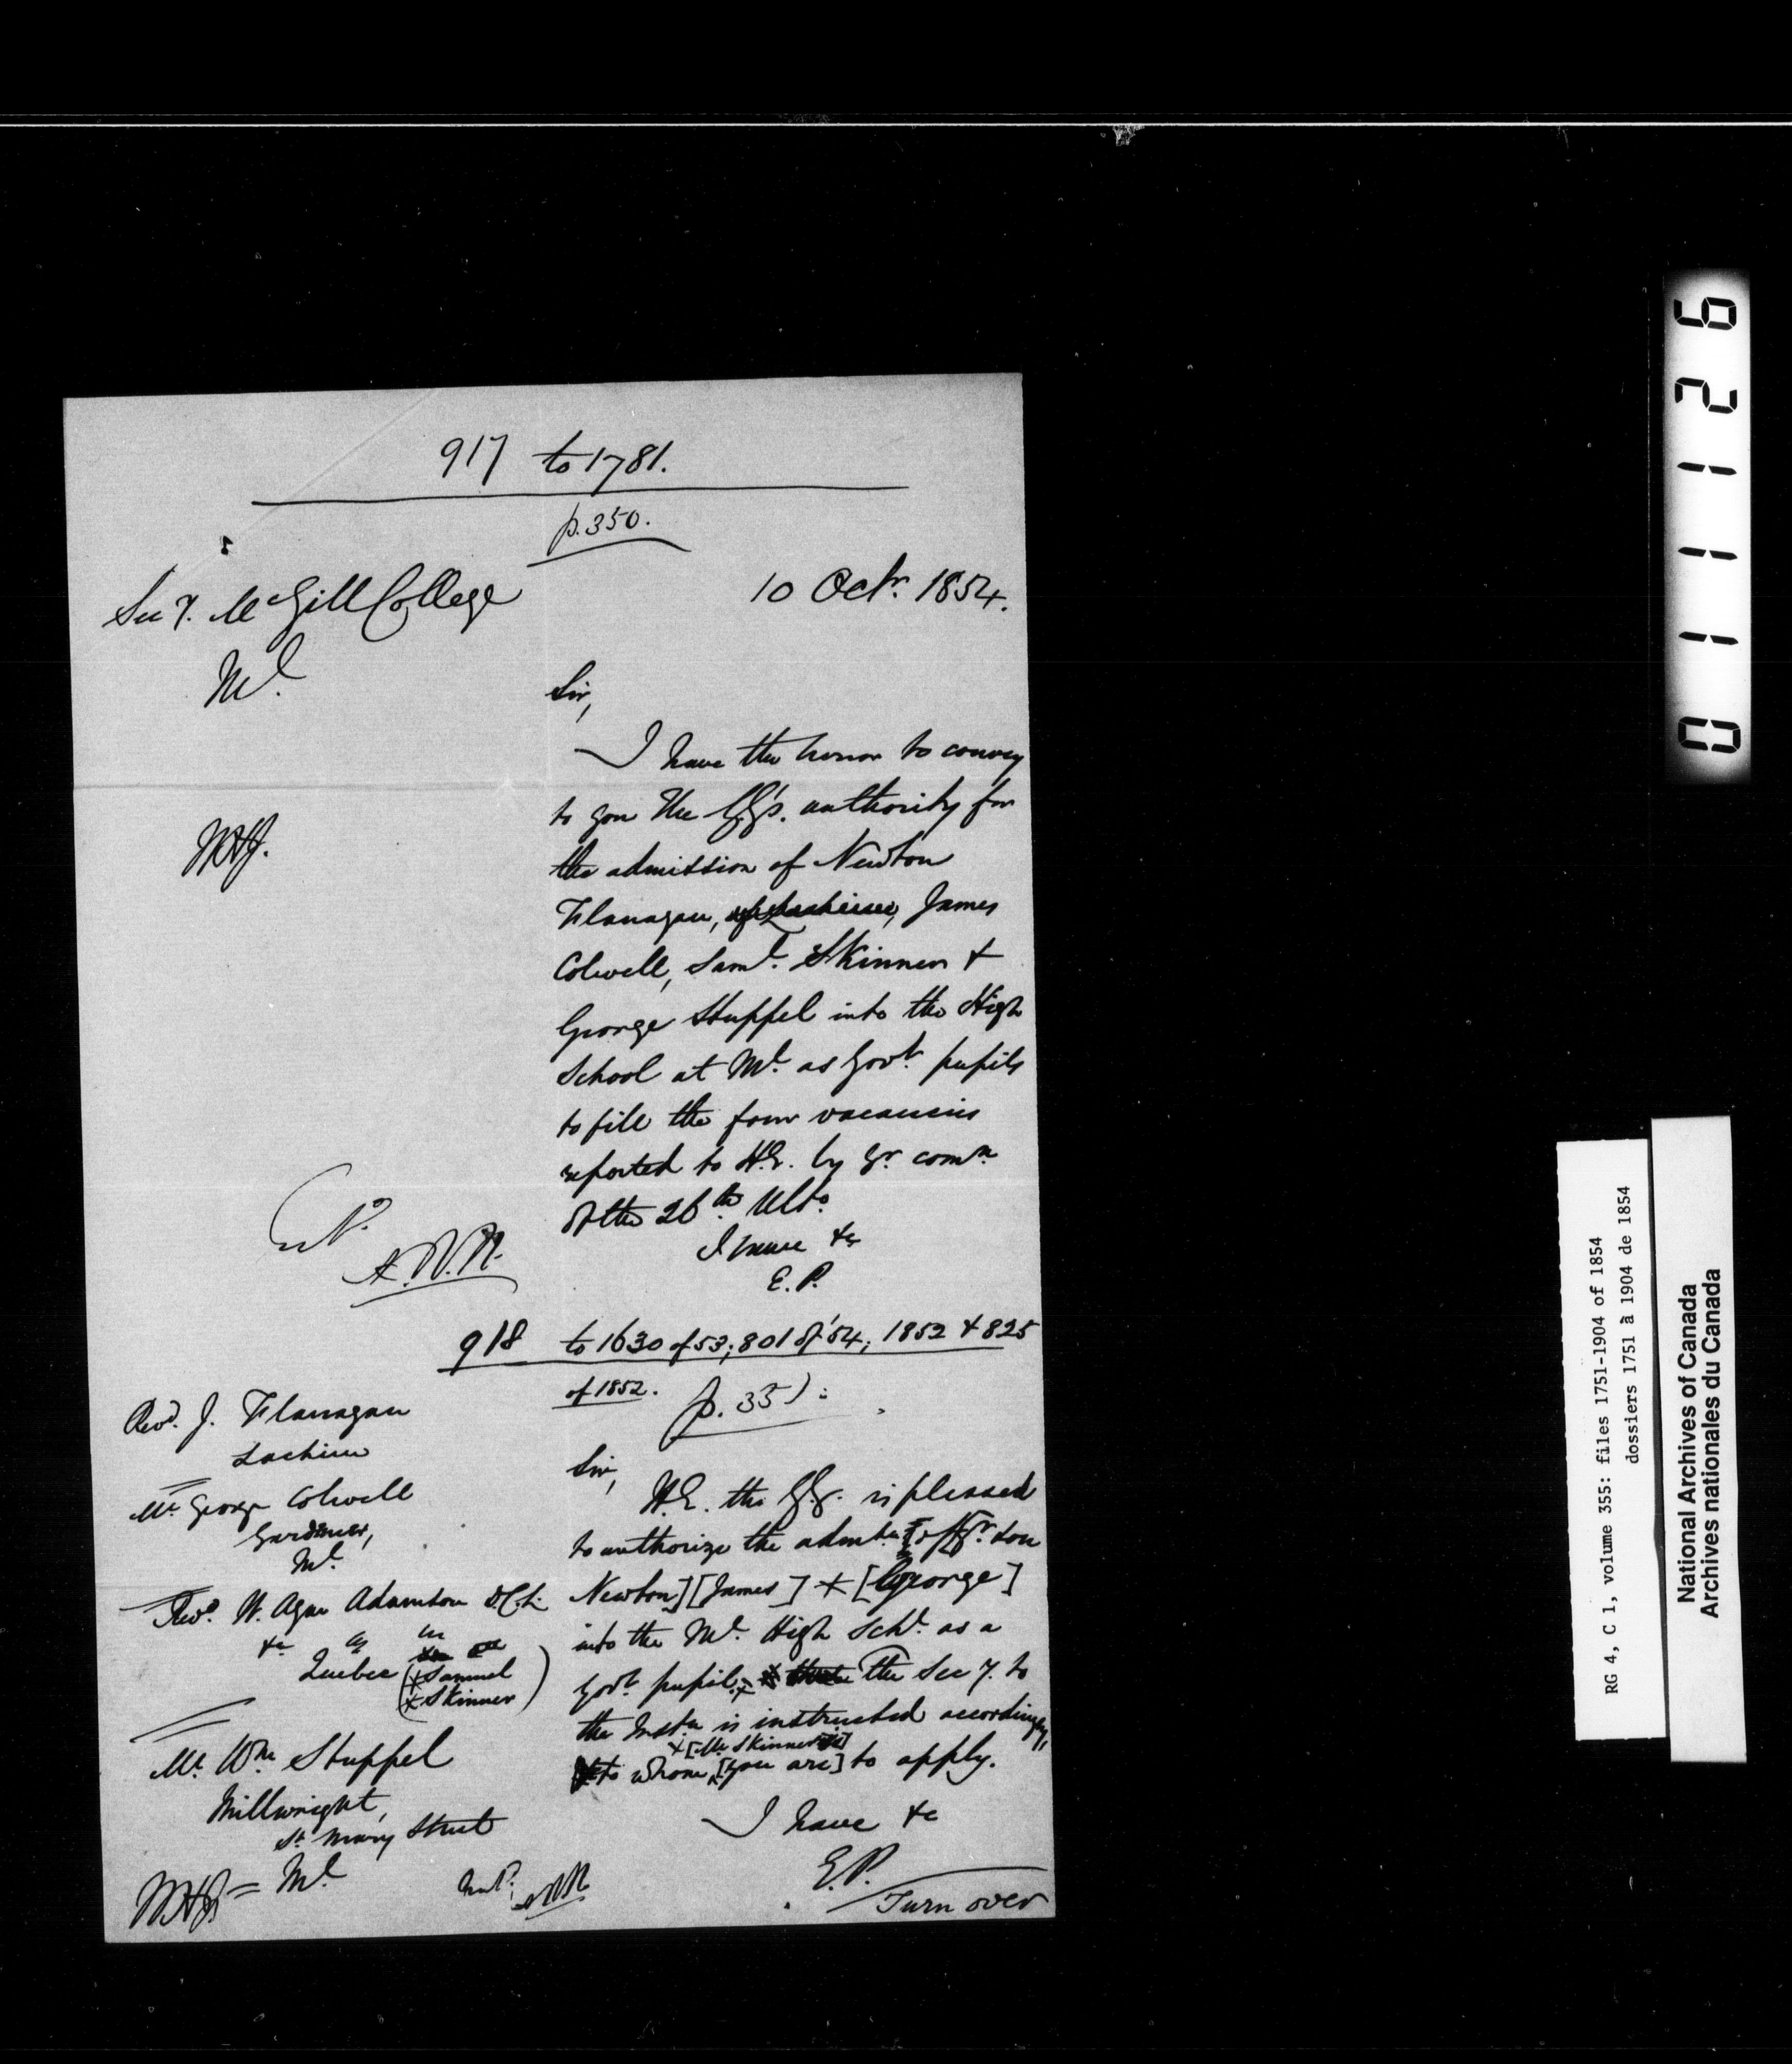 917 to 1781.
p. 350.
Secy. McGill College
Ml.
10 Octr. 1854.
Sir,
I have the honor to convey
to you the G.G's. authority for
the admission of Newton
Flanagan, of Lachine, James
Colwell, Saml. Skinner &
George Stuppel into the High
School at Ml. as Govt. pupils
to fill the four vacancies
reported to H.E. by yr. comn.
of the 26th. Ulto.
I have &c
E. P.
918 to 1630 of 53; 801 of '54; 1852 & 825
of 1852. p. 351:
Revd. J. Flanagan
Lachine
Mr. George Colwell
Gardener,
Ml.
Revd. W. Agar Adamson D.C.L.
&c &c &c
Quebec (x Samuel
x Skinner)
Mr. Wm. Stuppel
Millwright,
St. Mary Street
Ml.
Sir,
H.E. the G.G. is pleased
to authorize the admtn. of [yr. son
Newton] [James] x [George]
into the Ml. High Schl. as a
Govt. pupil; x the Secy. to
the Instn. is instructed accordingly,
x [Mr. Skinner is]
to whom [you are] to apply.
I have &c
E. P.
Turn over
011126
RG 4, C 1, volume 355: files 1751-1904 of 1854
dossiers 1751 à 1904 de 1854
National Archives of Canada
Archives nationales du Canada